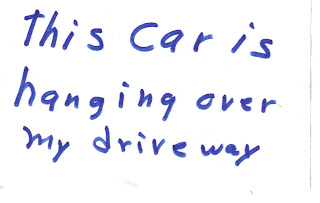 This car is
hanging over
my driveway